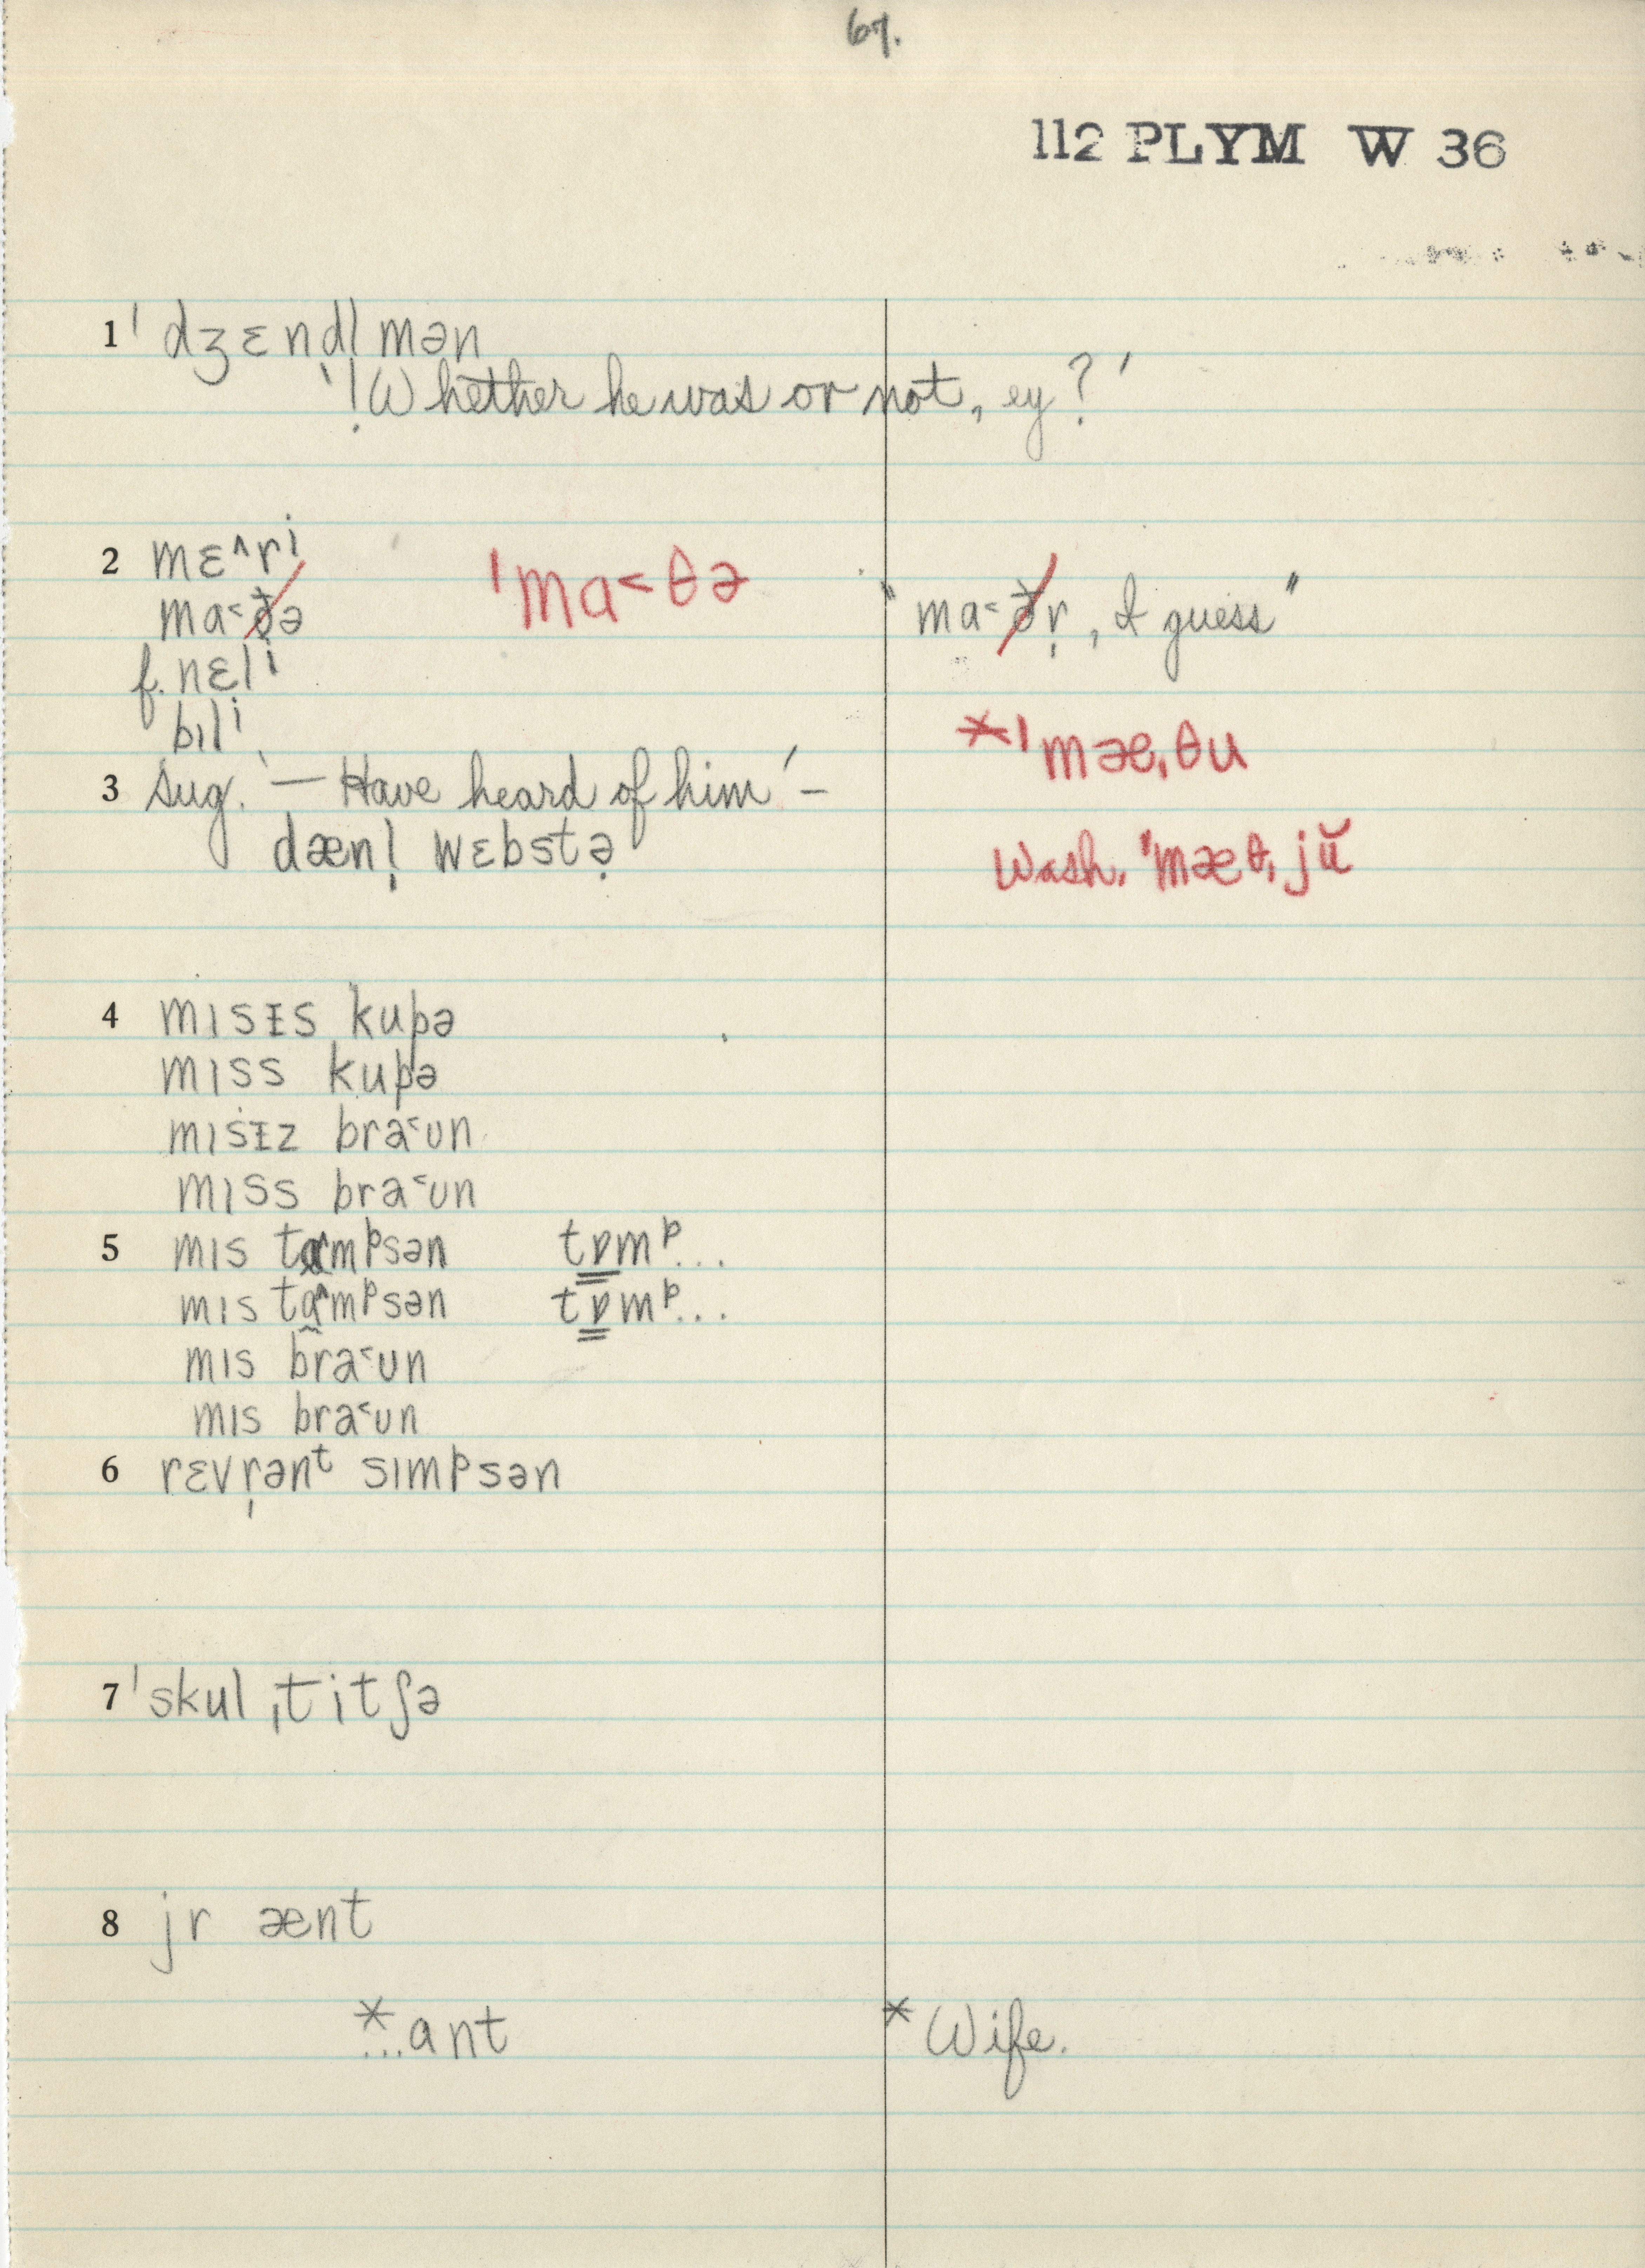 67.
112 PLYM W 36
1 ˈdʒɛndl mən
'! Whether he was or not, ey?'
2 mɛ^ri ˈma˂θə
ma˂ðə "ma˂ðr̩, I guess"
f. nɛli
bɪli *ˈmæˌθu
3 sug. '— Have heard of him' –
dænl̩ wɛbstə Wash. ˈmæθˌjŭ
4 mɪsɪs kupə
mɪss kupə
mɪsɪz bra˂ʊn
mɪss bra˂ʊn
5 mɪs tɑ^mᵖsən tɒmᵖ...
mɪs tɑ^mᵖsən tɒmᵖ...
mɪs bra˂ʊn
mɪs bra˂ʊn
6 rɛvr̩ənᵗ sɪmᵖsən
7 ˈskulˌtitʃə
8 jr ænt
*...ant * Wife.